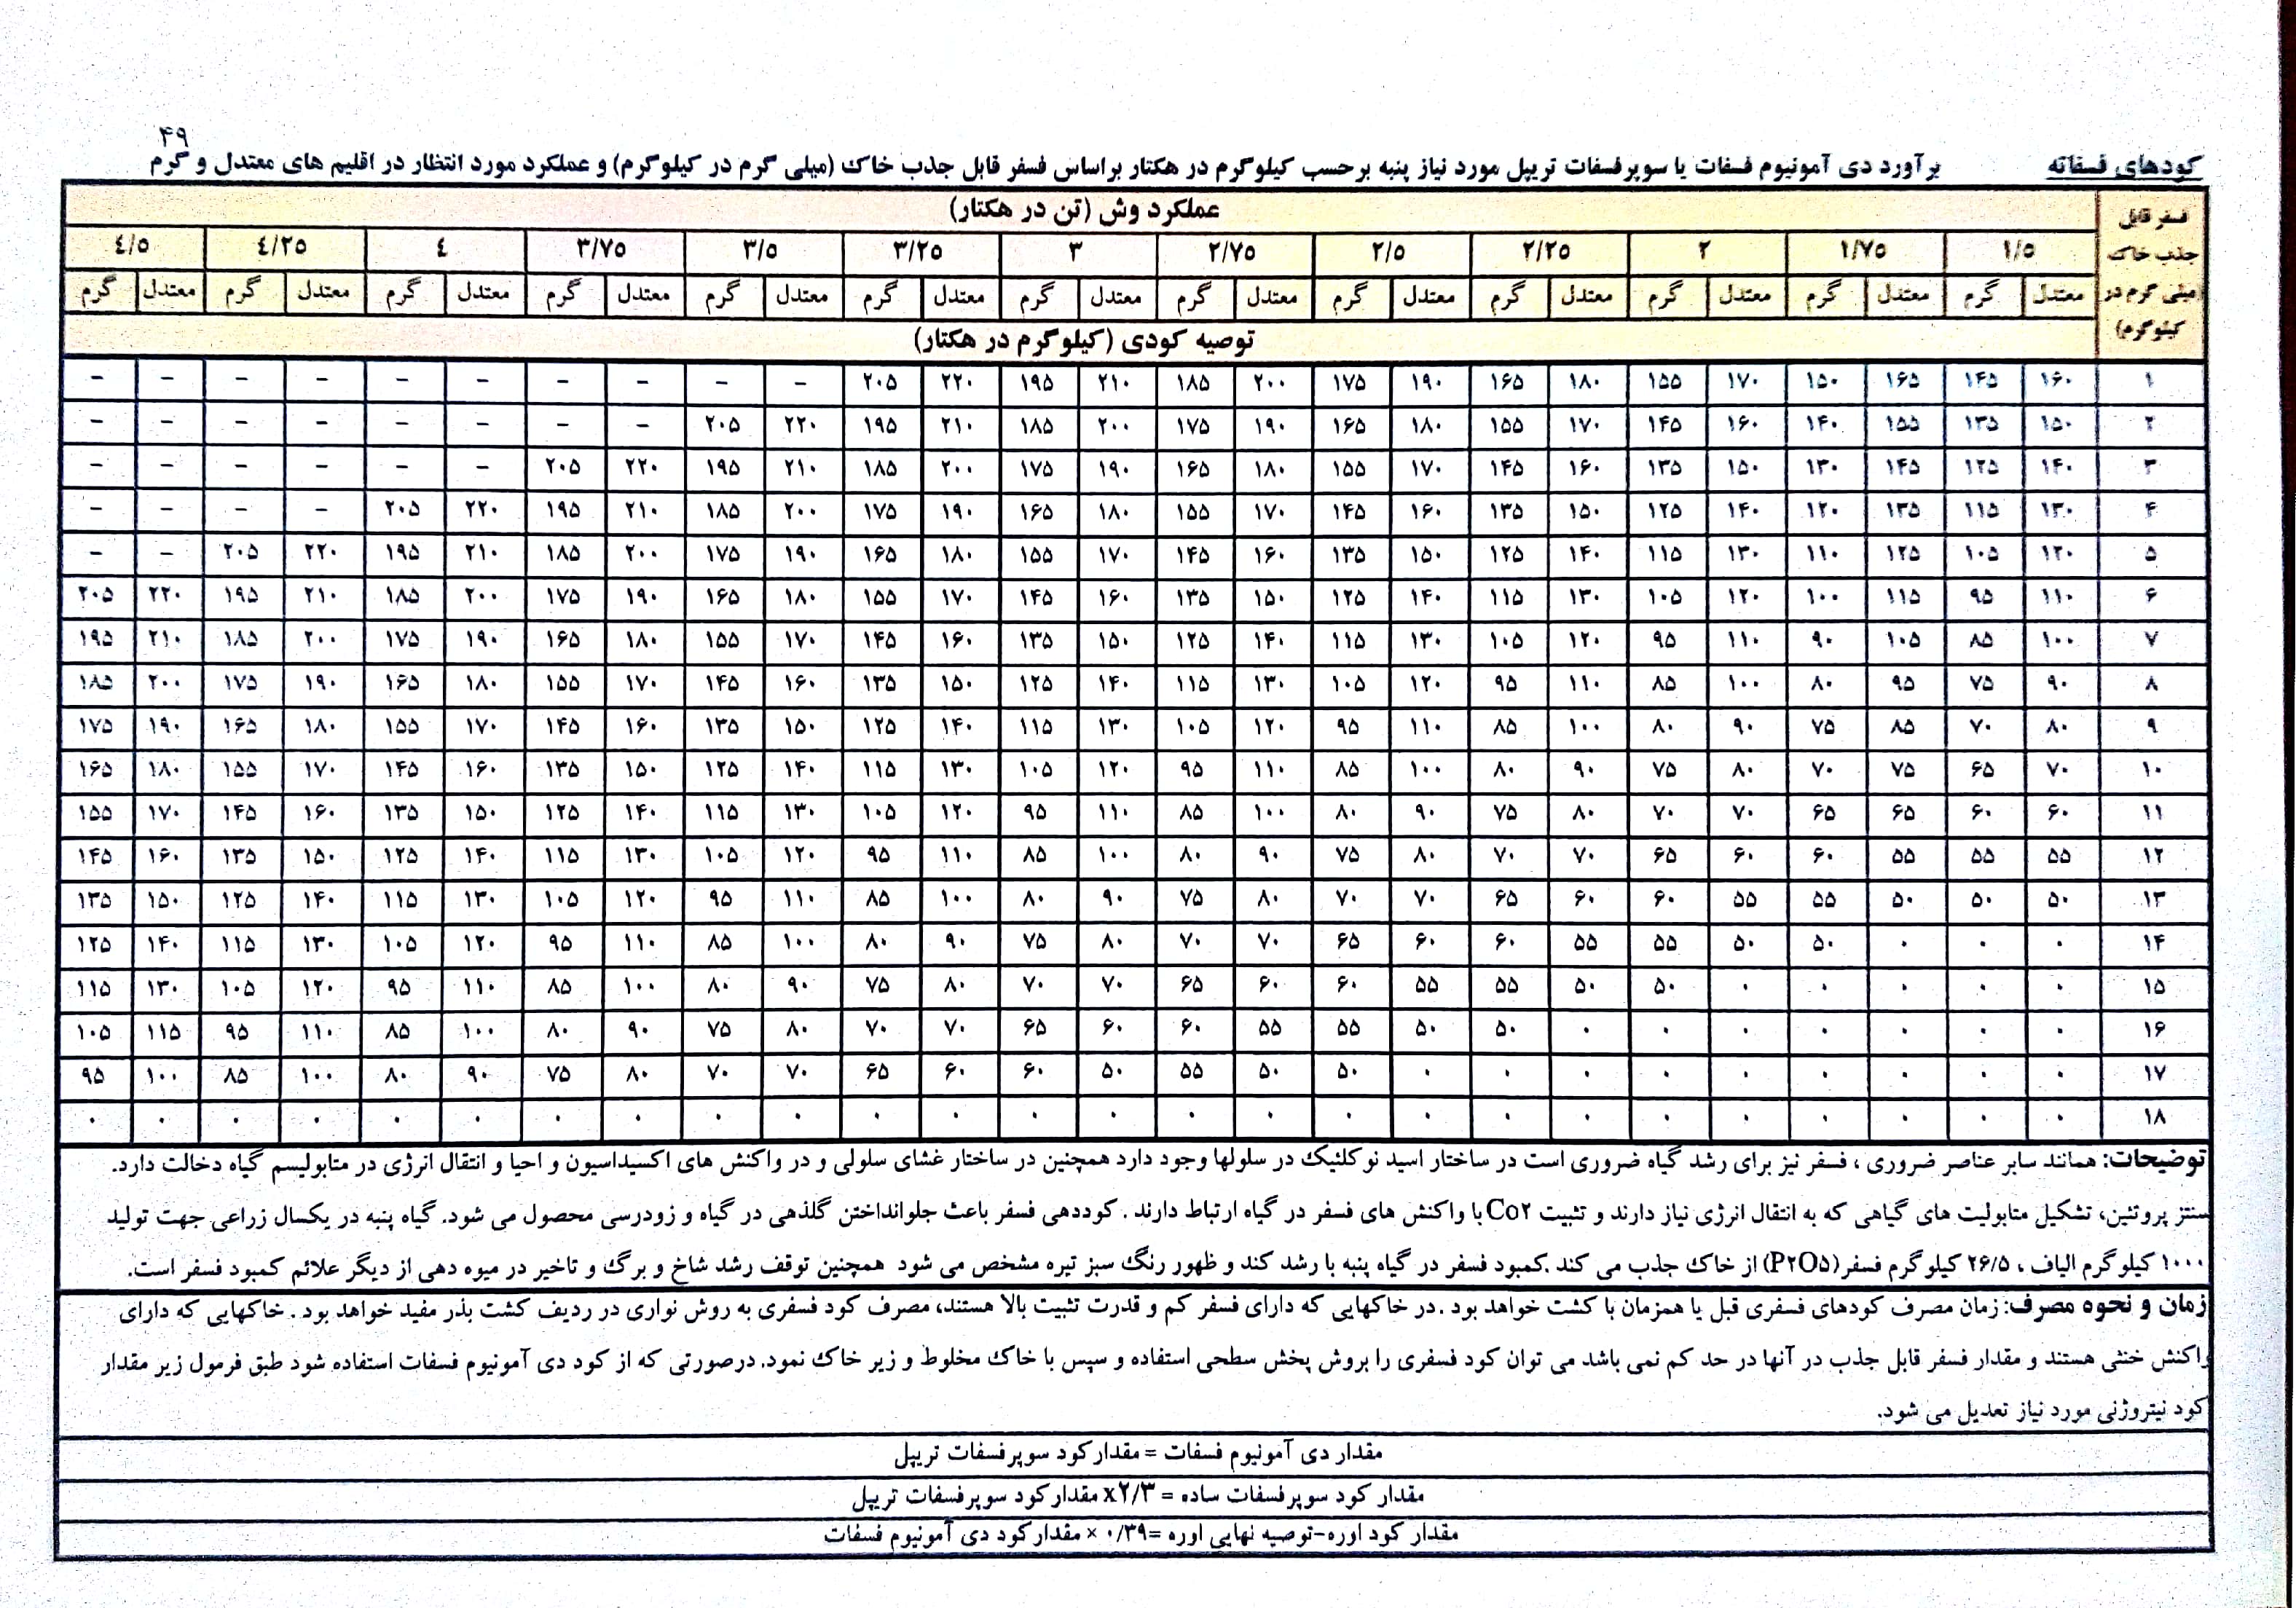 ۴۹
کودهای فسفاته برآورد دی آمونیوم فسفات یا سوپرفسفات تریپل مورد نیاز پنبه برحسب کیلوگرم در هکتار براساس فسفر قابل جذب خاک (میلی گرم در کیلوگرم) و عملکرد مورد انتظار در اقلیم های معتدل و گرم
فسفر قابل جذب خاک (میلی گرم در کیلوگرم) عملکرد وش (تن در هکتار)
۱/۵ ۱/۷۵ ۲ ۲/۲۵ ۲/۵ ۲/۷۵ ۳ ۳/۲۵ ۳/۵ ۳/۷۵ ٤ ٤/۲۵ ٤/۵
معتدل گرم معتدل گرم معتدل گرم معتدل گرم معتدل گرم معتدل گرم معتدل گرم معتدل گرم معتدل گرم معتدل گرم معتدل گرم معتدل گرم معتدل گرم
توصیه کودی (کیلوگرم در هکتار)
۱ ۱۶۰ ۱۴۵ ۱۶۵ ۱۵۰ ۱۷۰ ۱۵۵ ۱۸۰ ۱۶۵ ۱۹۰ ۱۷۵ ۲۰۰ ۱۸۵ ۲۱۰ ۱۹۵ ۲۲۰ ۲۰۵ - - - - - - - - - -
۲ ۱۵۰ ۱۳۵ ۱۵۵ ۱۴۰ ۱۶۰ ۱۴۵ ۱۷۰ ۱۵۵ ۱۸۰ ۱۶۵ ۱۹۰ ۱۷۵ ۲۰۰ ۱۸۵ ۲۱۰ ۱۹۵ ۲۲۰ ۲۰۵ - - - - - - - -
۳ ۱۴۰ ۱۲۵ ۱۴۵ ۱۳۰ ۱۵۰ ۱۳۵ ۱۶۰ ۱۴۵ ۱۷۰ ۱۵۵ ۱۸۰ ۱۶۵ ۱۹۰ ۱۷۵ ۲۰۰ ۱۸۵ ۲۱۰ ۱۹۵ ۲۲۰ ۲۰۵ - - - - - -
۴ ۱۳۰ ۱۱۵ ۱۳۵ ۱۲۰ ۱۴۰ ۱۲۵ ۱۵۰ ۱۳۵ ۱۶۰ ۱۴۵ ۱۷۰ ۱۵۵ ۱۸۰ ۱۶۵ ۱۹۰ ۱۷۵ ۲۰۰ ۱۸۵ ۲۱۰ ۱۹۵ ۲۲۰ ۲۰۵ - - - -
۵ ۱۲۰ ۱۰۵ ۱۲۵ ۱۱۰ ۱۳۰ ۱۱۵ ۱۴۰ ۱۲۵ ۱۵۰ ۱۳۵ ۱۶۰ ۱۴۵ ۱۷۰ ۱۵۵ ۱۸۰ ۱۶۵ ۱۹۰ ۱۷۵ ۲۰۰ ۱۸۵ ۲۱۰ ۱۹۵ ۲۲۰ ۲۰۵ - -
۶ ۱۱۰ ۹۵ ۱۱۵ ۱۰۰ ۱۲۰ ۱۰۵ ۱۳۰ ۱۱۵ ۱۴۰ ۱۲۵ ۱۵۰ ۱۳۵ ۱۶۰ ۱۴۵ ۱۷۰ ۱۵۵ ۱۸۰ ۱۶۵ ۱۹۰ ۱۷۵ ۲۰۰ ۱۸۵ ۲۱۰ ۱۹۵ ۲۲۰ ۲۰۵
۷ ۱۰۰ ۸۵ ۱۰۵ ۹۰ ۱۱۰ ۹۵ ۱۲۰ ۱۰۵ ۱۳۰ ۱۱۵ ۱۴۰ ۱۲۵ ۱۵۰ ۱۳۵ ۱۶۰ ۱۴۵ ۱۷۰ ۱۵۵ ۱۸۰ ۱۶۵ ۱۹۰ ۱۷۵ ۲۰۰ ۱۸۵ ۲۱۰ ۱۹۵
۸ ۹۰ ۷۵ ۹۵ ۸۰ ۱۰۰ ۸۵ ۱۱۰ ۹۵ ۱۲۰ ۱۰۵ ۱۳۰ ۱۱۵ ۱۴۰ ۱۲۵ ۱۵۰ ۱۳۵ ۱۶۰ ۱۴۵ ۱۷۰ ۱۵۵ ۱۸۰ ۱۶۵ ۱۹۰ ۱۷۵ ۲۰۰ ۱۸۵
۹ ۸۰ ۷۰ ۸۵ ۷۵ ۹۰ ۸۰ ۱۰۰ ۸۵ ۱۱۰ ۹۵ ۱۲۰ ۱۰۵ ۱۳۰ ۱۱۵ ۱۴۰ ۱۲۵ ۱۵۰ ۱۳۵ ۱۶۰ ۱۴۵ ۱۷۰ ۱۵۵ ۱۸۰ ۱۶۵ ۱۹۰ ۱۷۵
۱۰ ۷۰ ۶۵ ۷۵ ۷۰ ۸۰ ۷۵ ۹۰ ۸۰ ۱۰۰ ۸۵ ۱۱۰ ۹۵ ۱۲۰ ۱۰۵ ۱۳۰ ۱۱۵ ۱۴۰ ۱۲۵ ۱۵۰ ۱۳۵ ۱۶۰ ۱۴۵ ۱۷۰ ۱۵۵ ۱۸۰ ۱۶۵
۱۱ ۶۰ ۶۰ ۶۵ ۶۵ ۷۰ ۷۰ ۸۰ ۷۵ ۹۰ ۸۰ ۱۰۰ ۸۵ ۱۱۰ ۹۵ ۱۲۰ ۱۰۵ ۱۳۰ ۱۱۵ ۱۴۰ ۱۲۵ ۱۵۰ ۱۳۵ ۱۶۰ ۱۴۵ ۱۷۰ ۱۵۵
۱۲ ۵۵ ۵۵ ۵۵ ۶۰ ۶۰ ۶۵ ۷۰ ۷۰ ۸۰ ۷۵ ۹۰ ۸۰ ۱۰۰ ۸۵ ۱۱۰ ۹۵ ۱۲۰ ۱۰۵ ۱۳۰ ۱۱۵ ۱۴۰ ۱۲۵ ۱۵۰ ۱۳۵ ۱۶۰ ۱۴۵
۱۳ ۵۰ ۵۰ ۵۰ ۵۵ ۵۵ ۶۰ ۶۰ ۶۵ ۷۰ ۷۰ ۸۰ ۷۵ ۹۰ ۸۰ ۱۰۰ ۸۵ ۱۱۰ ۹۵ ۱۲۰ ۱۰۵ ۱۳۰ ۱۱۵ ۱۴۰ ۱۲۵ ۱۵۰ ۱۳۵
۱۴ ۰ ۰ ۰ ۵۰ ۵۰ ۵۵ ۵۵ ۶۰ ۶۰ ۶۵ ۷۰ ۷۰ ۸۰ ۷۵ ۹۰ ۸۰ ۱۰۰ ۸۵ ۱۱۰ ۹۵ ۱۲۰ ۱۰۵ ۱۳۰ ۱۱۵ ۱۴۰ ۱۲۵
۱۵ ۰ ۰ ۰ ۰ ۰ ۵۰ ۵۰ ۵۵ ۵۵ ۶۰ ۶۰ ۶۵ ۷۰ ۷۰ ۸۰ ۷۵ ۹۰ ۸۰ ۱۰۰ ۸۵ ۱۱۰ ۹۵ ۱۲۰ ۱۰۵ ۱۳۰ ۱۱۵
۱۶ ۰ ۰ ۰ ۰ ۰ ۰ ۰ ۵۰ ۵۰ ۵۵ ۵۵ ۶۰ ۶۰ ۶۵ ۷۰ ۷۰ ۸۰ ۷۵ ۹۰ ۸۰ ۱۰۰ ۸۵ ۱۱۰ ۹۵ ۱۱۵ ۱۰۵
۱۷ ۰ ۰ ۰ ۰ ۰ ۰ ۰ ۰ ۰ ۵۰ ۵۰ ۵۵ ۵۰ ۶۰ ۶۰ ۶۵ ۷۰ ۷۰ ۸۰ ۷۵ ۹۰ ۸۰ ۱۰۰ ۸۵ ۱۰۰ ۹۵
۱۸ ۰ ۰ ۰ ۰ ۰ ۰ ۰ ۰ ۰ ۰ ۰ ۰ ۰ ۰ ۰ ۰ ۰ ۰ ۰ ۰ ۰ ۰ ۰ ۰ ۰ ۰
توضیحات: همانند سایر عناصر ضروری ، فسفر نیز برای رشد گیاه ضروری است در ساختار اسید نوکلئیک در سلولها وجود دارد همچنین در ساختار غشای سلولی و در واکنش های اکسیداسیون و احیا و انتقال انرژی در متابولیسم گیاه دخالت دارد.
سنتز پروتئین، تشکیل متابولیت های گیاهی که به انتقال انرژی نیاز دارند و تثبیت Co۲ با واکنش های فسفر در گیاه ارتباط دارند . کوددهی فسفر باعث جلوانداختن گلدهی در گیاه و زودرسی محصول می شود. گیاه پنبه در یکسال زراعی جهت تولید
۱۰۰۰ کیلوگرم الیاف ، ۲۶/۵ کیلوگرم فسفر(P۲O۵) از خاک جذب می کند .کمبود فسفر در گیاه پنبه با رشد کند و ظهور رنگ سبز تیره مشخص می شود همچنین توقف رشد شاخ و برگ و تاخیر در میوه دهی از دیگر علائم کمبود فسفر است.
زمان و نحوه مصرف: زمان مصرف کودهای فسفری قبل یا همزمان با کشت خواهد بود .در خاکهایی که دارای فسفر کم و قدرت تثبیت بالا هستند، مصرف کود فسفری به روش نواری در ردیف کشت بذر مفید خواهد بود . خاکهایی که دارای
واکنش خنثی هستند و مقدار فسفر قابل جذب در آنها در حد کم نمی باشد می توان کود فسفری را بروش پخش سطحی استفاده و سپس با خاک مخلوط و زیر خاک نمود. درصورتی که از کود دی آمونیوم فسفات استفاده شود طبق فرمول زیر مقدار
کود نیتروژنی مورد نیاز تعدیل می شود.
مقدار دی آمونیوم فسفات = مقدارکود سوپرفسفات تریپل
مقدار کود سوپرفسفات ساده = ۲/۳x مقدارکود سوپرفسفات تریپل
مقدار کود اوره-توصیه نهایی اوره =۰/۳۹ × مقدارکود دی آمونیوم فسفات